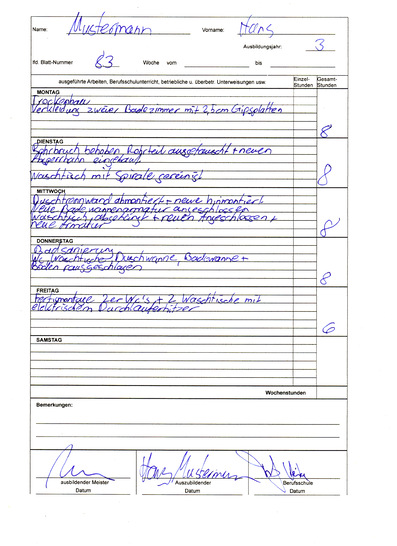 Name: Mustermann Vorname: Hans
Ausbildungsjahr: 3
lfd. Blatt-Nummer 83 Woche vom bis
ausgeführte Arbeiten, Berufsschulunterricht, betriebliche u. überbetr. Unterweisungen usw. Einzel-Stunden Gesamt-Stunden
MONTAG
Trockenbau
Verkleidung zweier Badezimmer mit 2,5cm Gipsplatten
8
DIENSTAG
Rohrbruch behoben, Rohrteil ausgetauscht + neuen
Absperrhahn eingebaut
Waschtisch mit Spirale gereinigt
8
MITTWOCH
Duschtrennwand abmontiert + neue hinmontiert
Neue Badewannenarmatur angeschlossen
Waschtisch abgehängt + neuen Angeschlossen +
neue Armatur
8
DONNERSTAG
Badsanierung
Wc, Waschtische, Duschwanne, Badewanne +
Boden rausgeschlagen
8
FREITAG
Fertigmontage 2er Wc's + 2 Waschtische mit
elektrischem Durchlauferhitzer
6
SAMSTAG
Wochenstunden
Bemerkungen:
Hans Mustermann
ausbildender Meister Auszubildender Berufsschule
Datum Datum Datum